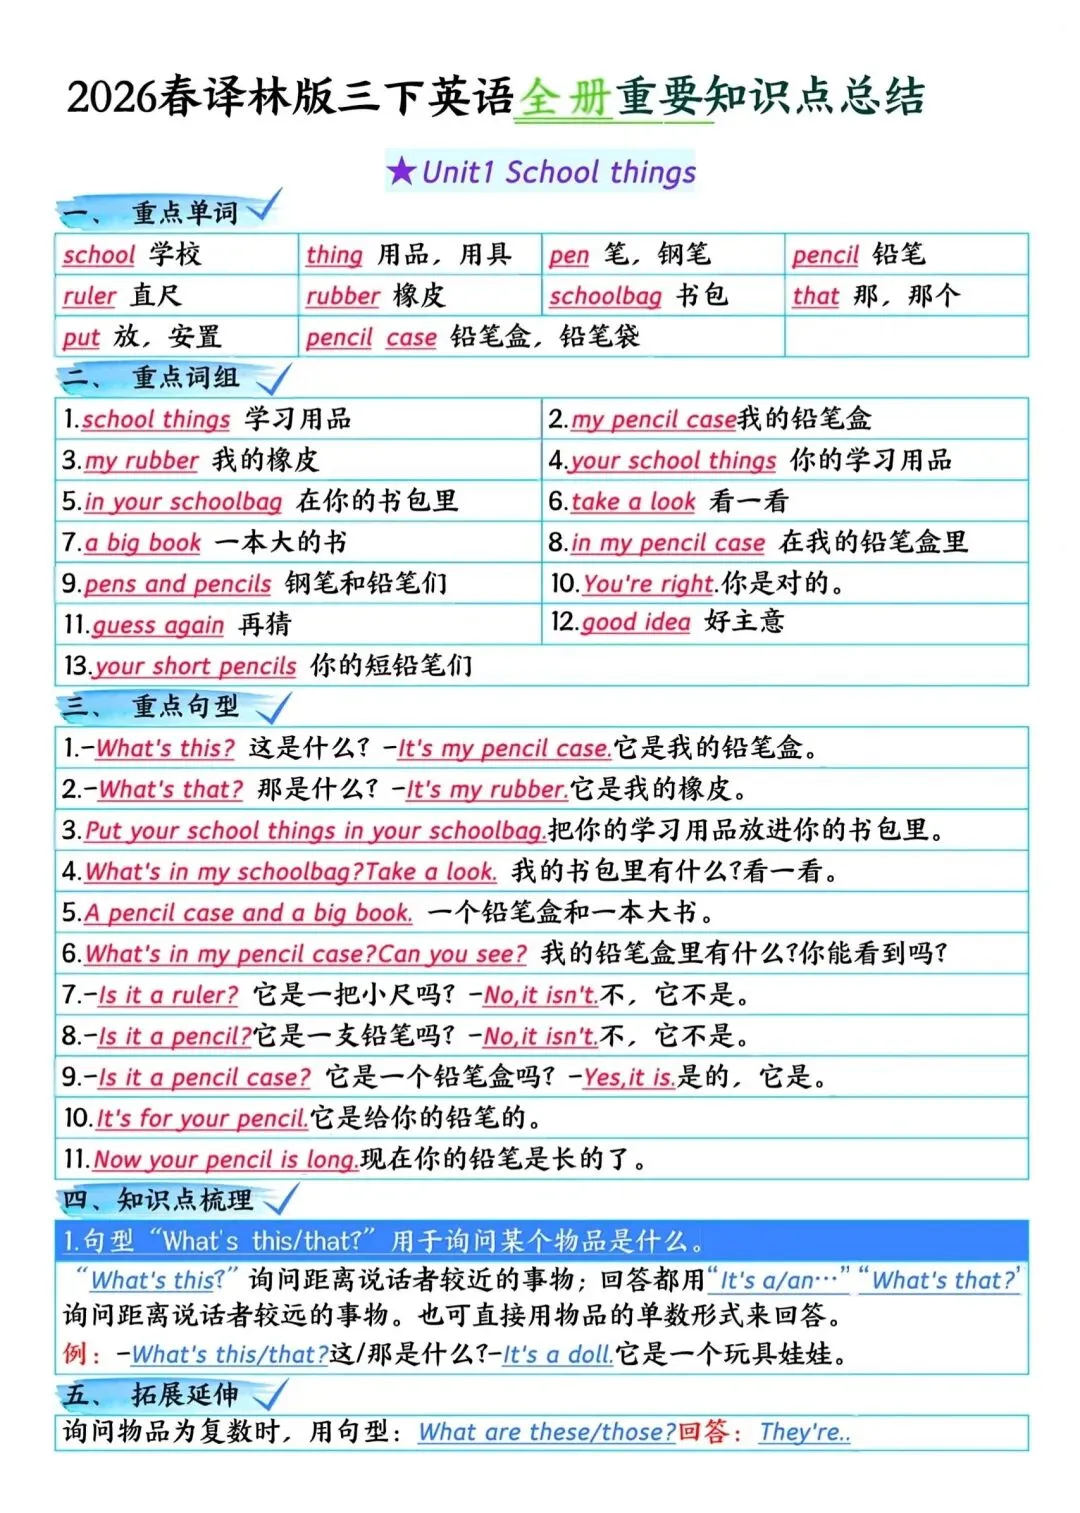 2026春译林版三下英语全册重要知识点总结
★Unit1 School things
一、 重点单词
school 学校 thing 用品，用具 pen 笔，钢笔 pencil 铅笔
ruler 直尺 rubber 橡皮 schoolbag 书包 that 那，那个
put 放，安置 pencil case 铅笔盒，铅笔袋
二、 重点词组
1.school things 学习用品 2.my pencil case我的铅笔盒
3.my rubber 我的橡皮 4.your school things 你的学习用品
5.in your schoolbag 在你的书包里 6.take a look 看一看
7.a big book 一本大的书 8.in my pencil case 在我的铅笔盒里
9.pens and pencils 钢笔和铅笔们 10.You're right.你是对的。
11.guess again 再猜 12.good idea 好主意
13.your short pencils 你的短铅笔们
三、 重点句型
1.-What's this? 这是什么? -It's my pencil case.它是我的铅笔盒。
2.-What's that? 那是什么? -It's my rubber.它是我的橡皮。
3.Put your school things in your schoolbag.把你的学习用品放进你的书包里。
4.What's in my schoolbag?Take a look. 我的书包里有什么?看一看。
5.A pencil case and a big book. 一个铅笔盒和一本大书。
6.What's in my pencil case?Can you see? 我的铅笔盒里有什么?你能看到吗?
7.-Is it a ruler? 它是一把小尺吗? -No,it isn't.不，它不是。
8.-Is it a pencil?它是一支铅笔吗? -No,it isn't.不，它不是。
9.-Is it a pencil case? 它是一个铅笔盒吗? -Yes,it is.是的，它是。
10.It's for your pencil.它是给你的铅笔的。
11.Now your pencil is long.现在你的铅笔是长的了。
四、知识点梳理
1.句型“What's this/that?”用于询问某个物品是什么。
“What's this?”询问距离说话者较近的事物；回答都用“It's a/an…”“What's that?’
询问距离说话者较远的事物。也可直接用物品的单数形式来回答。
例：-What's this/that?这/那是什么?-It's a doll.它是一个玩具娃娃。
五、 拓展延伸
询问物品为复数时，用句型：What are these/those?回答：They're..